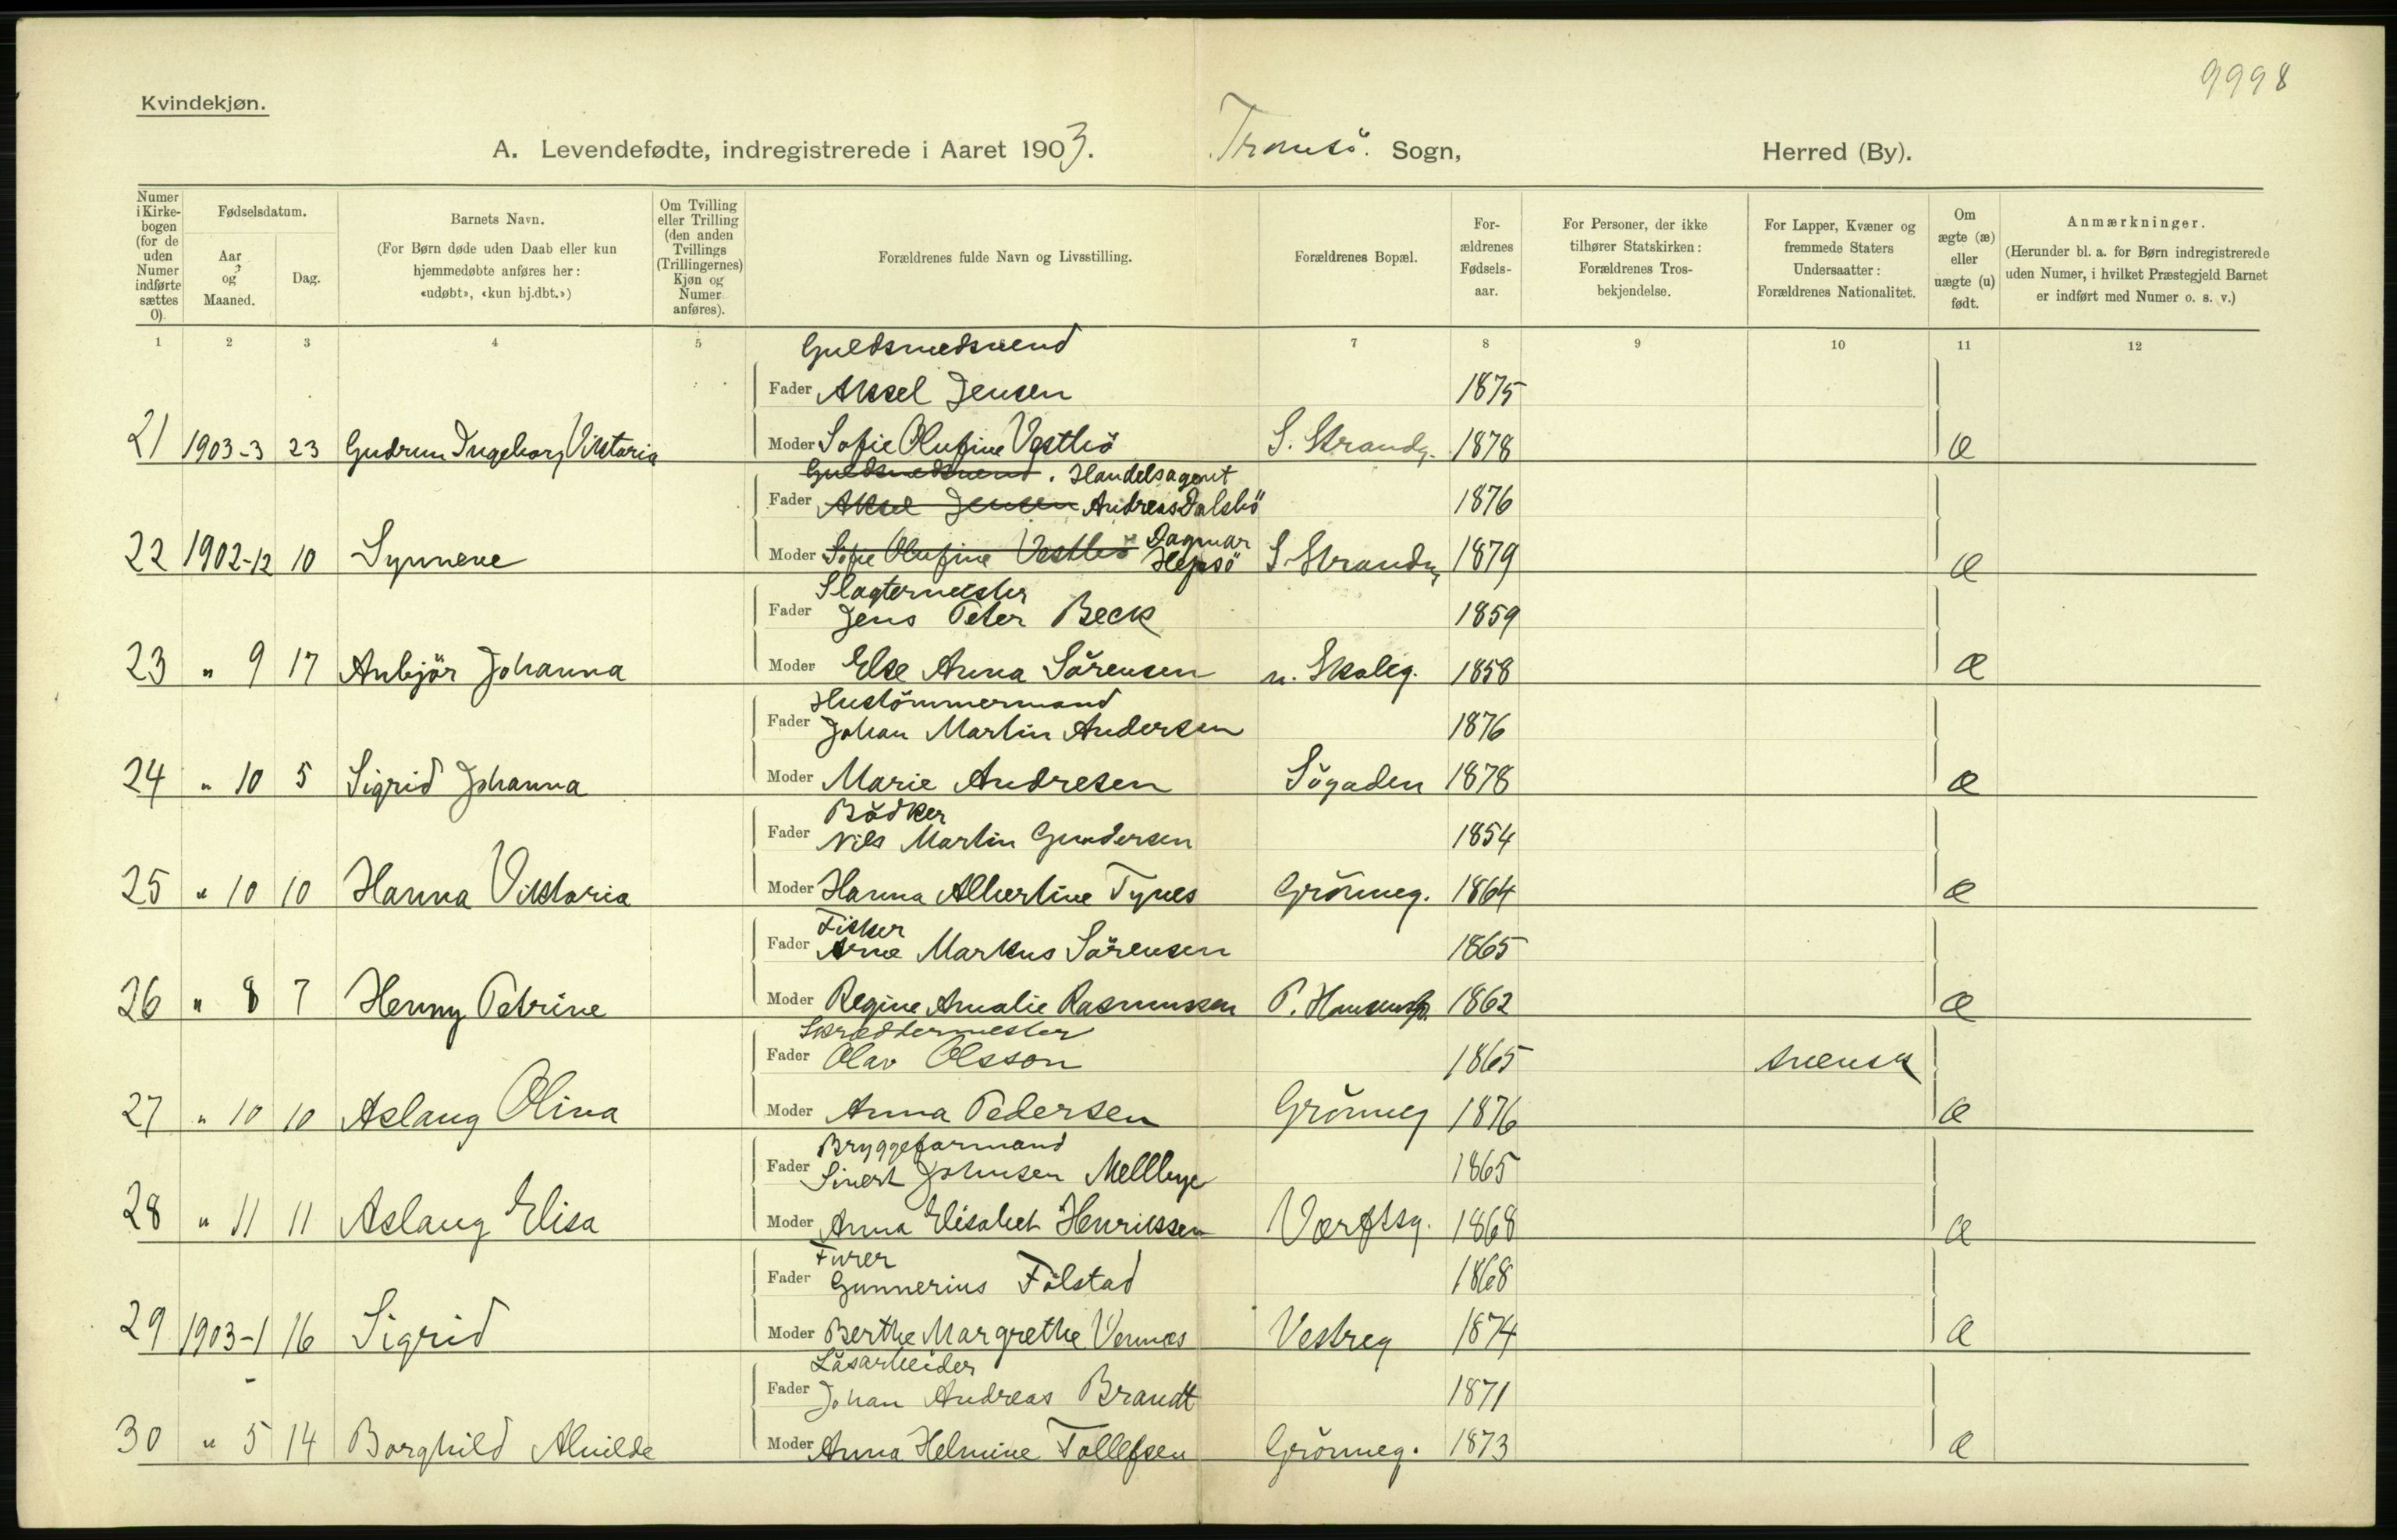 9998
Kvindekjøn.
A. Levendefødte, indregistrerede i Aaret 1903. Tromsö. Sogn, Herred (By).
Numer i Kirke-bogen (for de uden Numer indførte sættes 0).
Fødselsdatum.
Aar og Maaned.
Dag.
Barnets Navn.
(For Børn døde uden Daab eller kun hjemmedøbte anføres her: «udøbt», «kun hj.dbt.»)
Om Tvilling eller Trilling (den anden Tvillings (Trillingernes) Kjøn og Numer anføres).
Forældrenes fulde Navn og Livsstilling.
Forældrenes Bopæl.
For-ældrenes Fødsels-aar.
For Personer, der ikke tilhører Statskirken: Forældrenes Tros-bekjendelse.
For Lapper, Kvæner og fremmede Staters Undersaatter: Forældrenes Nationalitet.
Om ægte (æ) eller uægte (u) født.
Anmærkninger.
(Herunder bl. a. for Børn indregistrerede uden Numer, i hvilket Præstegjeld Barnet er indført med Numer o. s. v.)
1 2 3 4 5 7 8 9 10 11 12
Guldsmedsvend
Fader Aksel Jensen 1875
21 1903-3 23 Gudrun Ingeborg Viktoria Moder Sofie Olufine Vestbö S. Strandg. 1878 æ
Guldsmedsvend. Handelsagent
Fader Aksel Jensen Andreas Dalsbö 1876
22 1902-12 10 Synneve Moder Sofie Olufine Vestbö Dagmar Hepsö S Strandg 1879 æ
Slagtermester
Fader Jens Peter Beck 1859
23 " 9 17 Anbjör Johanna Moder Else Anna Sörensen n. Skoleg. 1858 æ
Hustömmermand
Fader Johan Martin Andersen 1876
24 " 10 5 Sigrid Johanna Moder Marie Andresen Sögaden 1878 æ
Bödker
Fader Nils Martin Gundersen 1854
25 " 10 10 Hanna Viktoria Moder Hanna Albertine Tynes Grönneg. 1864 æ
Fisker
Fader Arne Markus Sörensen 1865
26 " 8 7 Henny Petrine Moder Regine Amalie Rasmussen P. Hansensg. 1862 æ
Skrædtermester
Fader Olav Olsson 1865 svensk
27 " 10 10 Aslaug Olina Moder Anna Pedersen Grönneg 1876 æ
Bryggeformand
Fader Sivert Johnsen Mellbye 1865
28 " 11 11 Aslaug Elisa Moder Anna Elisabet Henrikssen Værftsg. 1868 æ
Furer
Fader Gunnerius Fölstad 1868
29 1903-1 16 Sigrid Moder Berthe Margrethe Vennes Vestreg 1874 æ
Låsarbeider
Fader Johan Andreas Brandt 1871
30 " 5 14 Borghild Alvilde Moder Anna Helmine Tollefsen Grönneg. 1873 æ